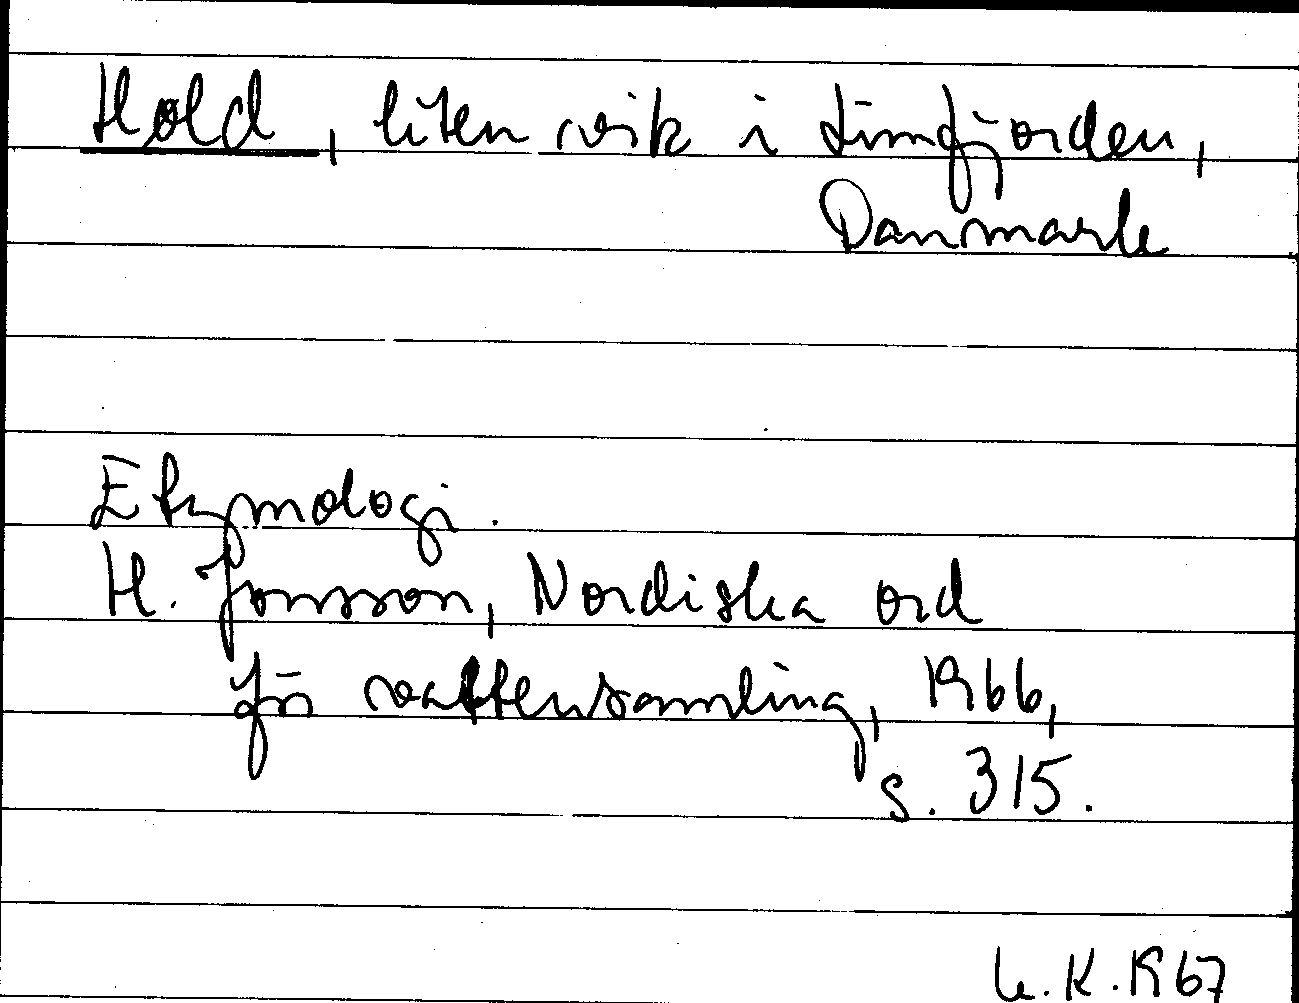 Høld, liten vik i Limfjorden,
Danmark
Etymologi.
H. Jonsson, Nordiska ord
för vattensamling, 1966,
s. 315.
K. 1967